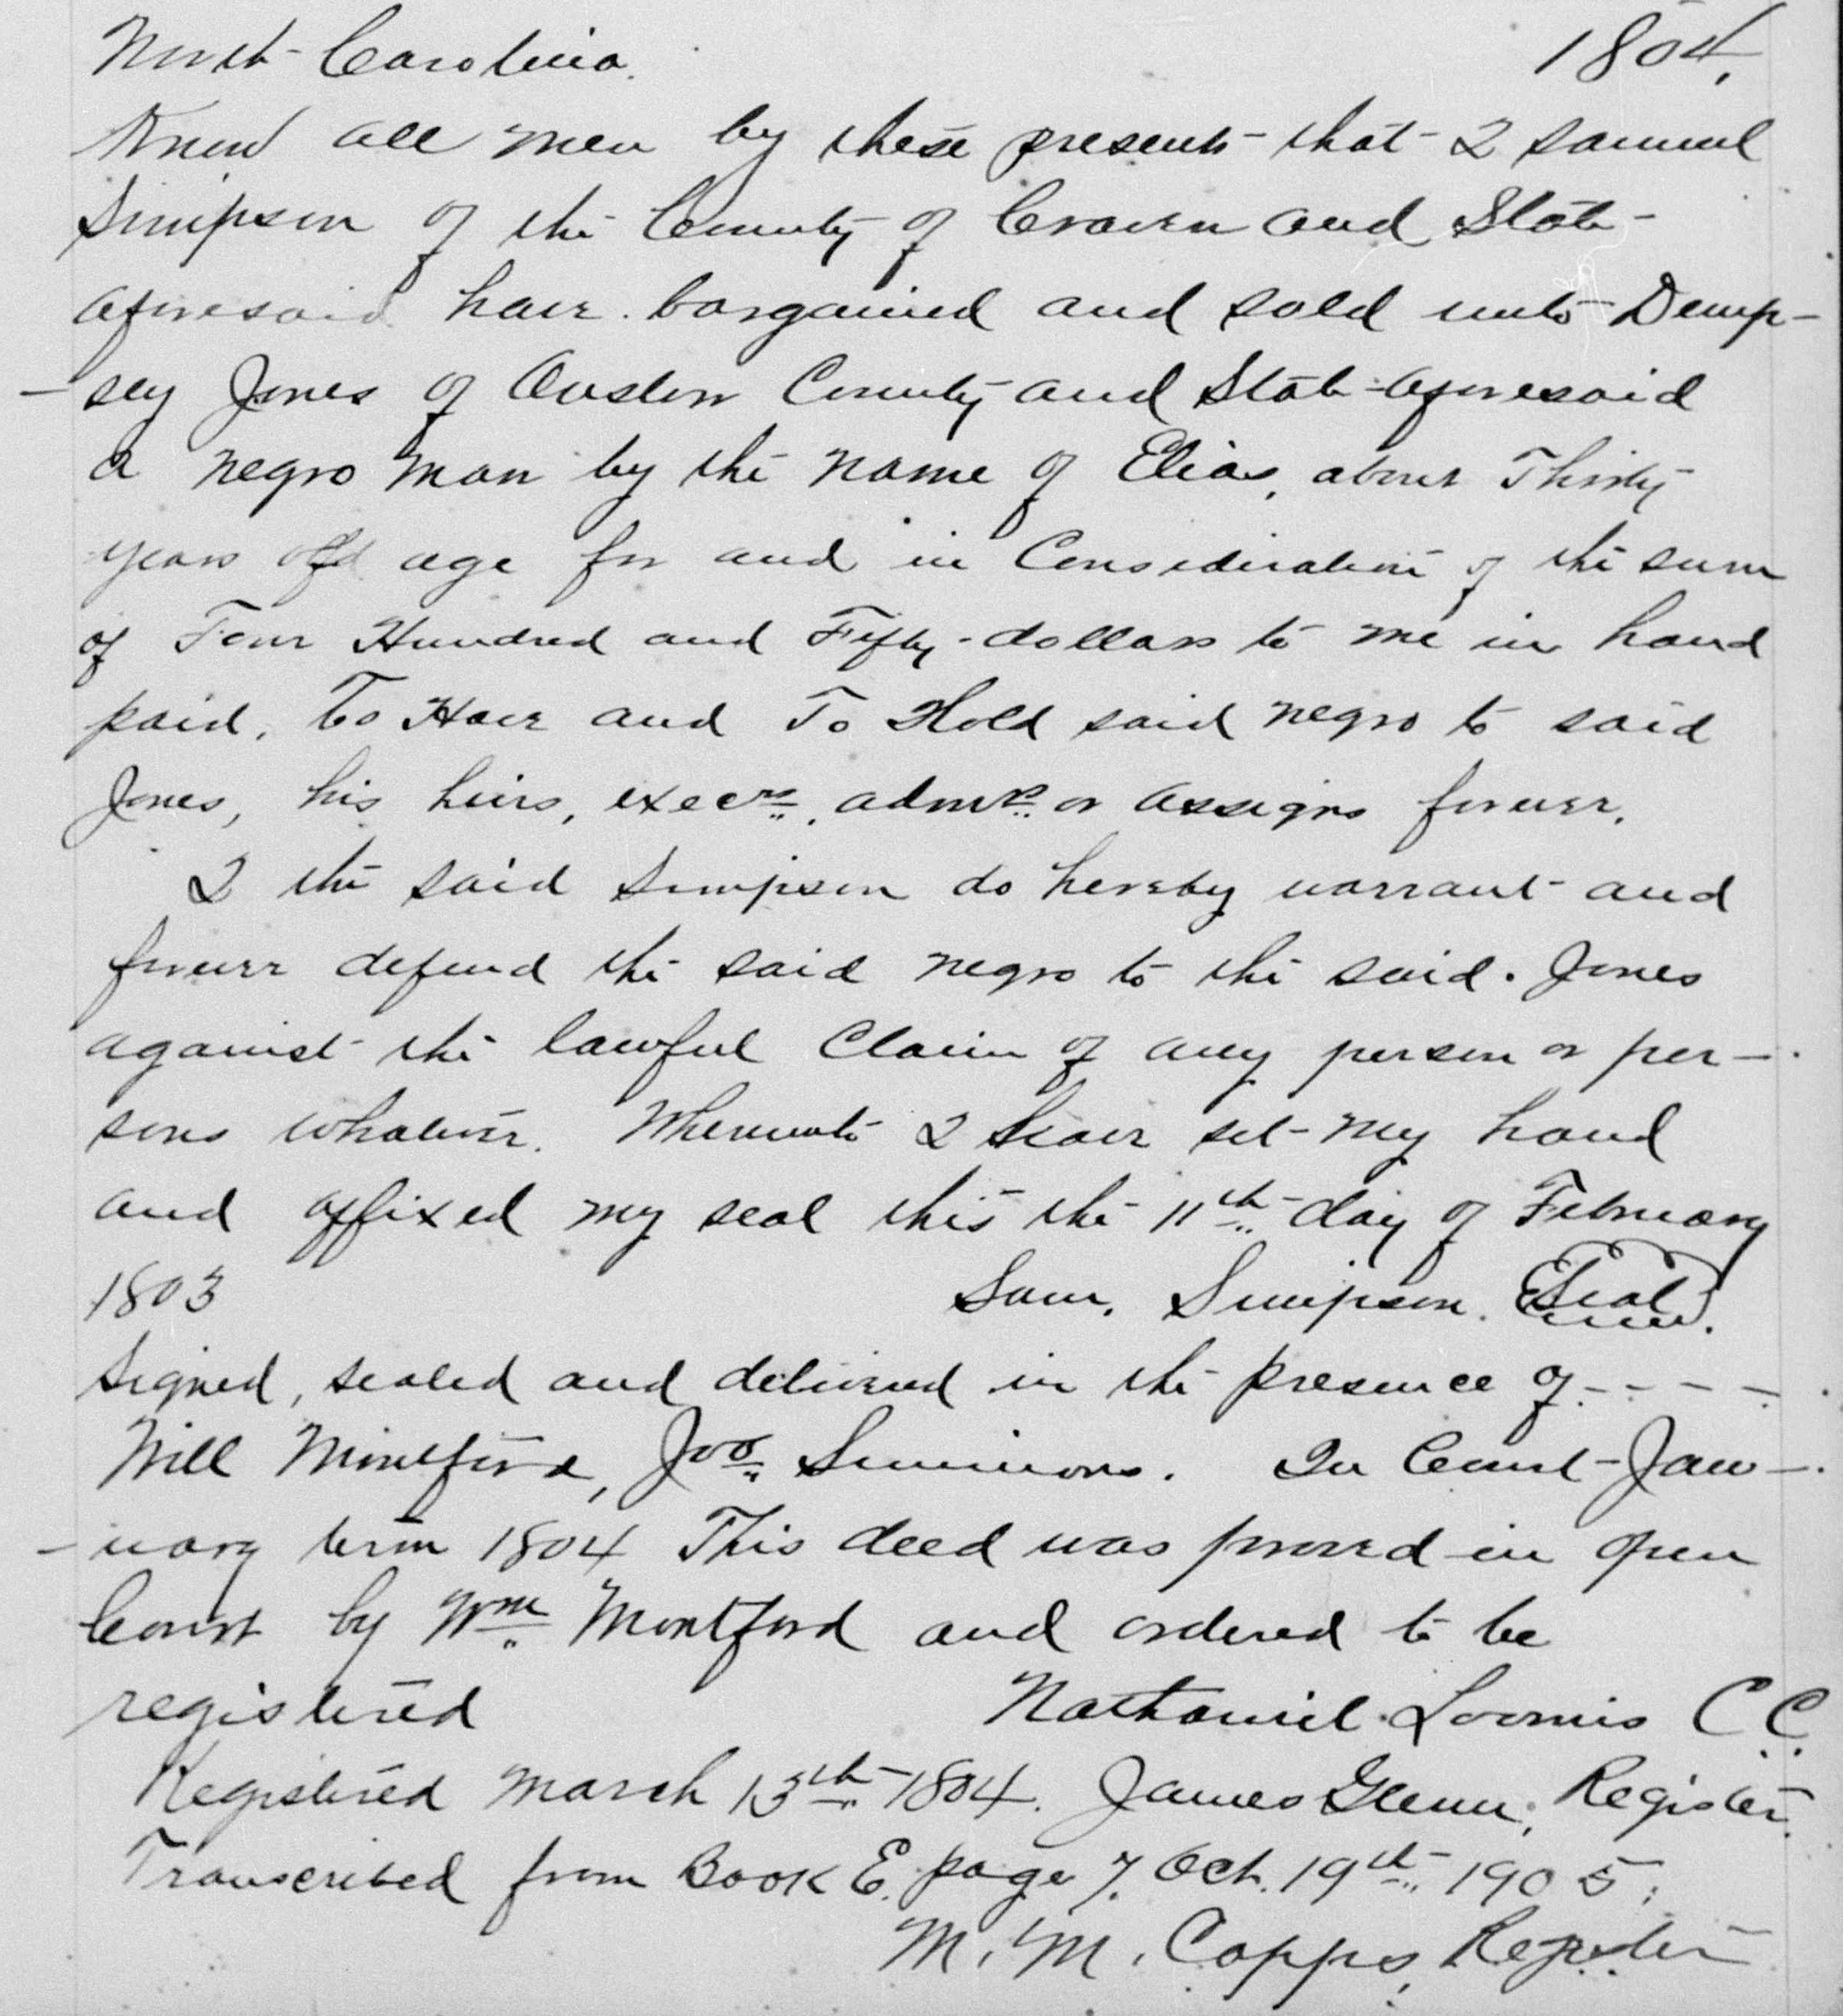 North Carolina. 1804.
Know all men by these presents that I Samuel
Simpson of the County of Craven and State
aforesaid have bargained and sold unto Demp-
-sey Jones of Onslow County and State aforesaid
a negro man by the name of Elias, about Thirty
years of age for and in Consideration of the sum
of Four Hundred and Fifty dollars to me in hand
paid, To Have and To Hold said negro to said
Jones, his heirs, execrs, admrs or assigns forever.
I the said Simpson do hereby warrant and
forever defend the said negro to the said Jones
against the lawful Claim of any person or per-
sons whatever. Whereunto I have set my hand
and affixed my seal this the 11th day of February
1803 Sam. Simpson. Seal.
Signed, sealed and delivered in the presence of - - - -
Will Montford, Jno Simmons. In Court Jan-
-uary term 1804 This deed was proved in open
Court by Wm Montford and ordered to be
registered Nathaniel Loomis C.C.
Registered March 13th 1804. James Glenn, Register.
Transcribed from Book E. page 7. Oct. 19th 1905.
M. M. Capps, Register